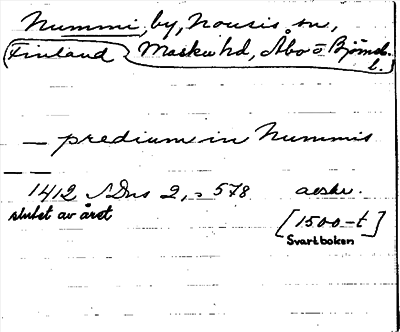 Nummi, by, Nousis sn,
Finland Masku hd, Åbo o Björneb. l.
— predium in Nummis
— —
1412 SDns 2, s 578 avskr.
slutet av året [1500-t]
Svartboken